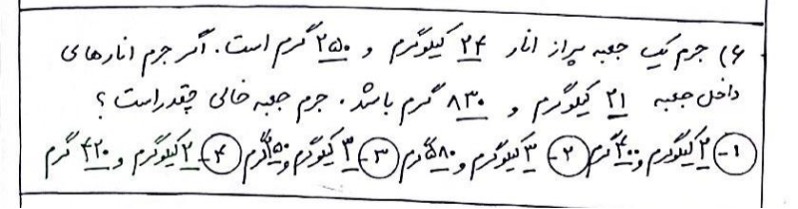 ۶) جرم یک جعبه پر از انار ۲۴ کیلوگرم و ۲۵۰ گرم است. اگر جرم انارهای
داخل جعبه ۲۱ کیلوگرم و ۸۳۰ گرم باشد. جرم جعبه خالی چقدر است؟
۱- ۲ کیلوگرم و ۴۰۰ گرم ۲- ۳ کیلوگرم و ۵۸۰ گرم ۳- ۳ کیلوگرم و ۱۵۰ گرم ۴- ۲ کیلوگرم و ۴۲۰ گرم